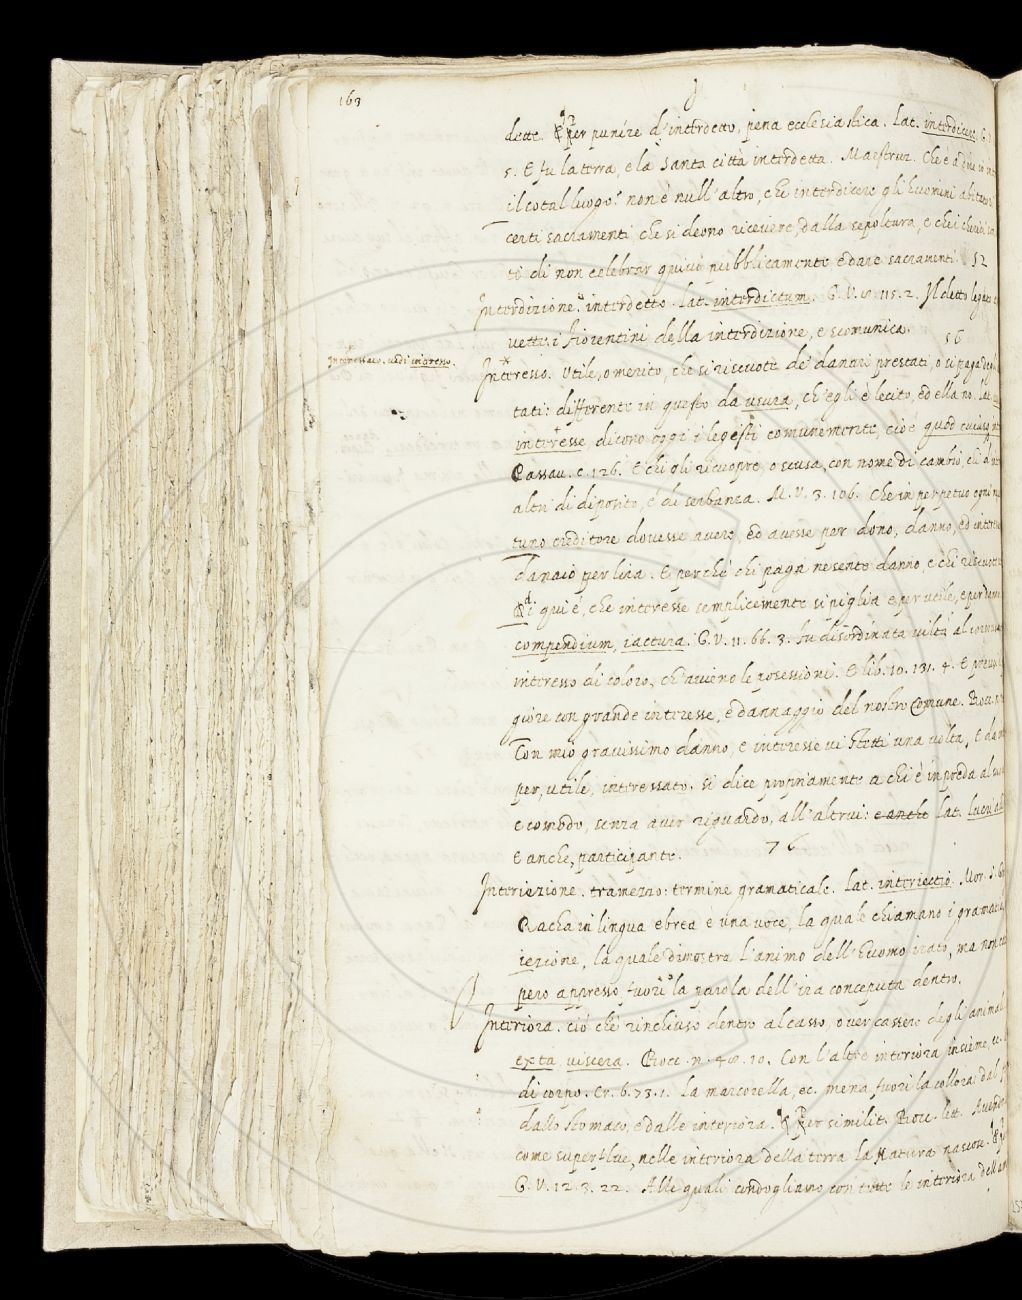 163
J
dette. §. Per punire d'interdetto, pena ecclesiastica. Lat. interdicere. G.
5. E fu la terra, e la santa città interdetta. Maestruz. Che è a dire
il cotal luogo? non è null'altro, che interdicere gli huomini abitanti
certi sacramenti che si deono ricevere, dalla sepoltura, e che i cherici
ti di non celebrar quivi pubblicamente e dare sacramenti. 52
Interdizione. interdetto. Lat. interdictum. G. V. 8. 115. 2. Il detto legato
vetti i Fiorentini della interdizione, e scomunica. 56
Interessato. vedi ingresso.
Interesso. Utile, o merito, che si riscuote de' danari prestati, o si paga
tati: differente in questo da usura, ch'egli è lecito, ed ella no. Lat.
interesse, dicono oggi i legisti comunemente, cioè quod cuiusq
Passav. c. 126. E chi gli ricuopre, o scusa, con nome di cambio, chi
altri di diposito, e di serbanza. M. V. 3. 106. Che in perpetuo ogni
tuno creditore dovesse avere, ed avesse per dono, danno, ed interesse
danaio per lira. E perchè chi paga ne sente danno, e chi riscuote
Di qui è, che interesse semplicemente si piglia e per utile, e per danno
compendium, iactura. G. V. 11. 66. 3. Fu disordinata viltà al
interesso di coloro, ch'avieno le posessioni. E lib. 10. 131. 4. E
giore con grande interesse, e dannaggio del nostro Comune. Bocc.
Con mio gravissimo danno, e interesse vi stetti una volta. E da
per, utile, interessato. si dice propriamente a chi è in preda al suo
e comodo, senza aver riguardo, all'altrui: e anche Lat.
E anche, participante. 76
Interiezione. tramezzo: termine gramaticale. Lat. interiectio. Mor. S.
Racha in lingua ebrea è una voce, la quale chiamano i gramatici
iezione, la quale dimostra l'animo dell'huomo irato, ma non
pero appresso fuori la parola dell'ira conceputa dentro.
Interiora. ciò che rinchiuso dentro al casso, over cassero degli animali
exta, viscera. Bocc. n. 48. 10. Con l'altre interiora insieme, ec.
di corpo. Cr. 6. 73. 1. La marcorella, ec. mena fuori la collora: dal
dallo stomaco, e dalle interiora. §. Per similit. Bocc. lett.
come superflue, nelle interiora della terra la Natura nascose.
G. V. 12. 3. 22. Alle quali condogliamo con tutte le interiora dell